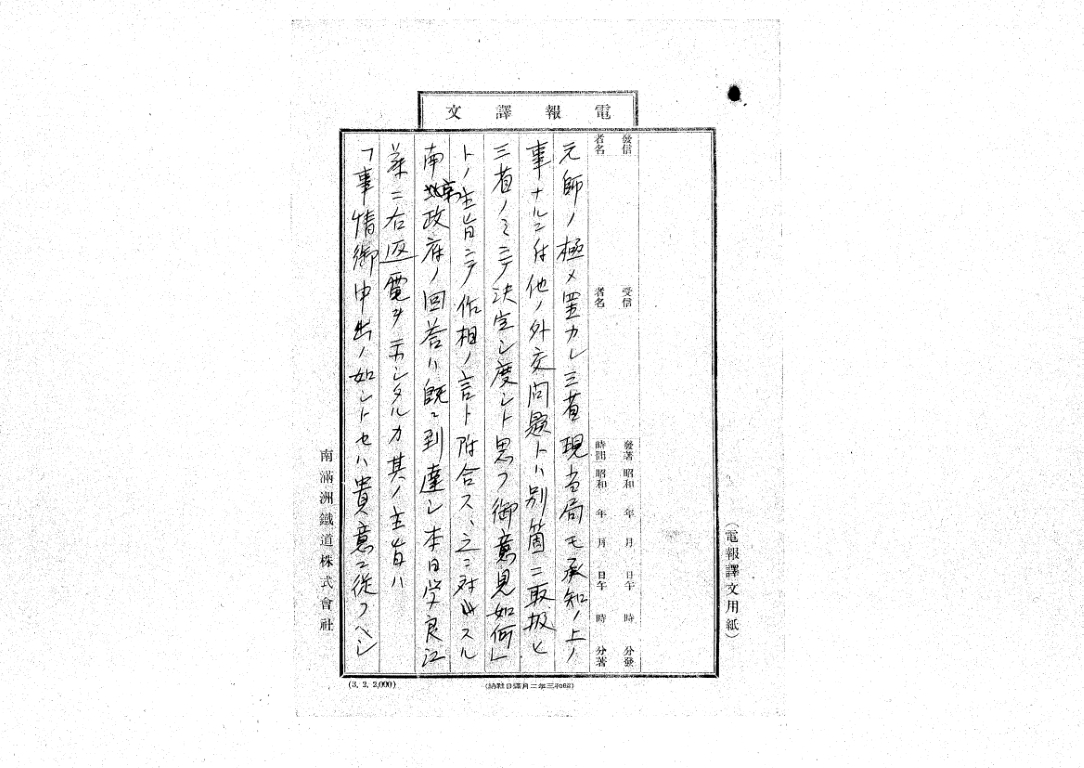 電報譯文
（電報譯文用紙）
發信者名
受信者名
發著時間 昭和 年 月 日午 時 分發
昭和 年 月 日午 時 分著
元帥ノ極メ置カレ三省現当局モ承知ノ上ノ
事ナルニ付他ノ外交問題トハ別箇ニ取扱ヒ
三省ノミニテ決定シ度シト思フ御意見如何」
トノ主旨ニテ作相ノ言ト附合ス、之ニ対スル
南京政府ノ回答ハ既ニ到達シ本日学良江
藻ニ右返電ヲ示シタルカ其ノ主旨ハ
「事情御申出ノ如シトセハ貴意ニ従フヘシ
南滿洲鐵道株式會社
(3. 2. 2,000)